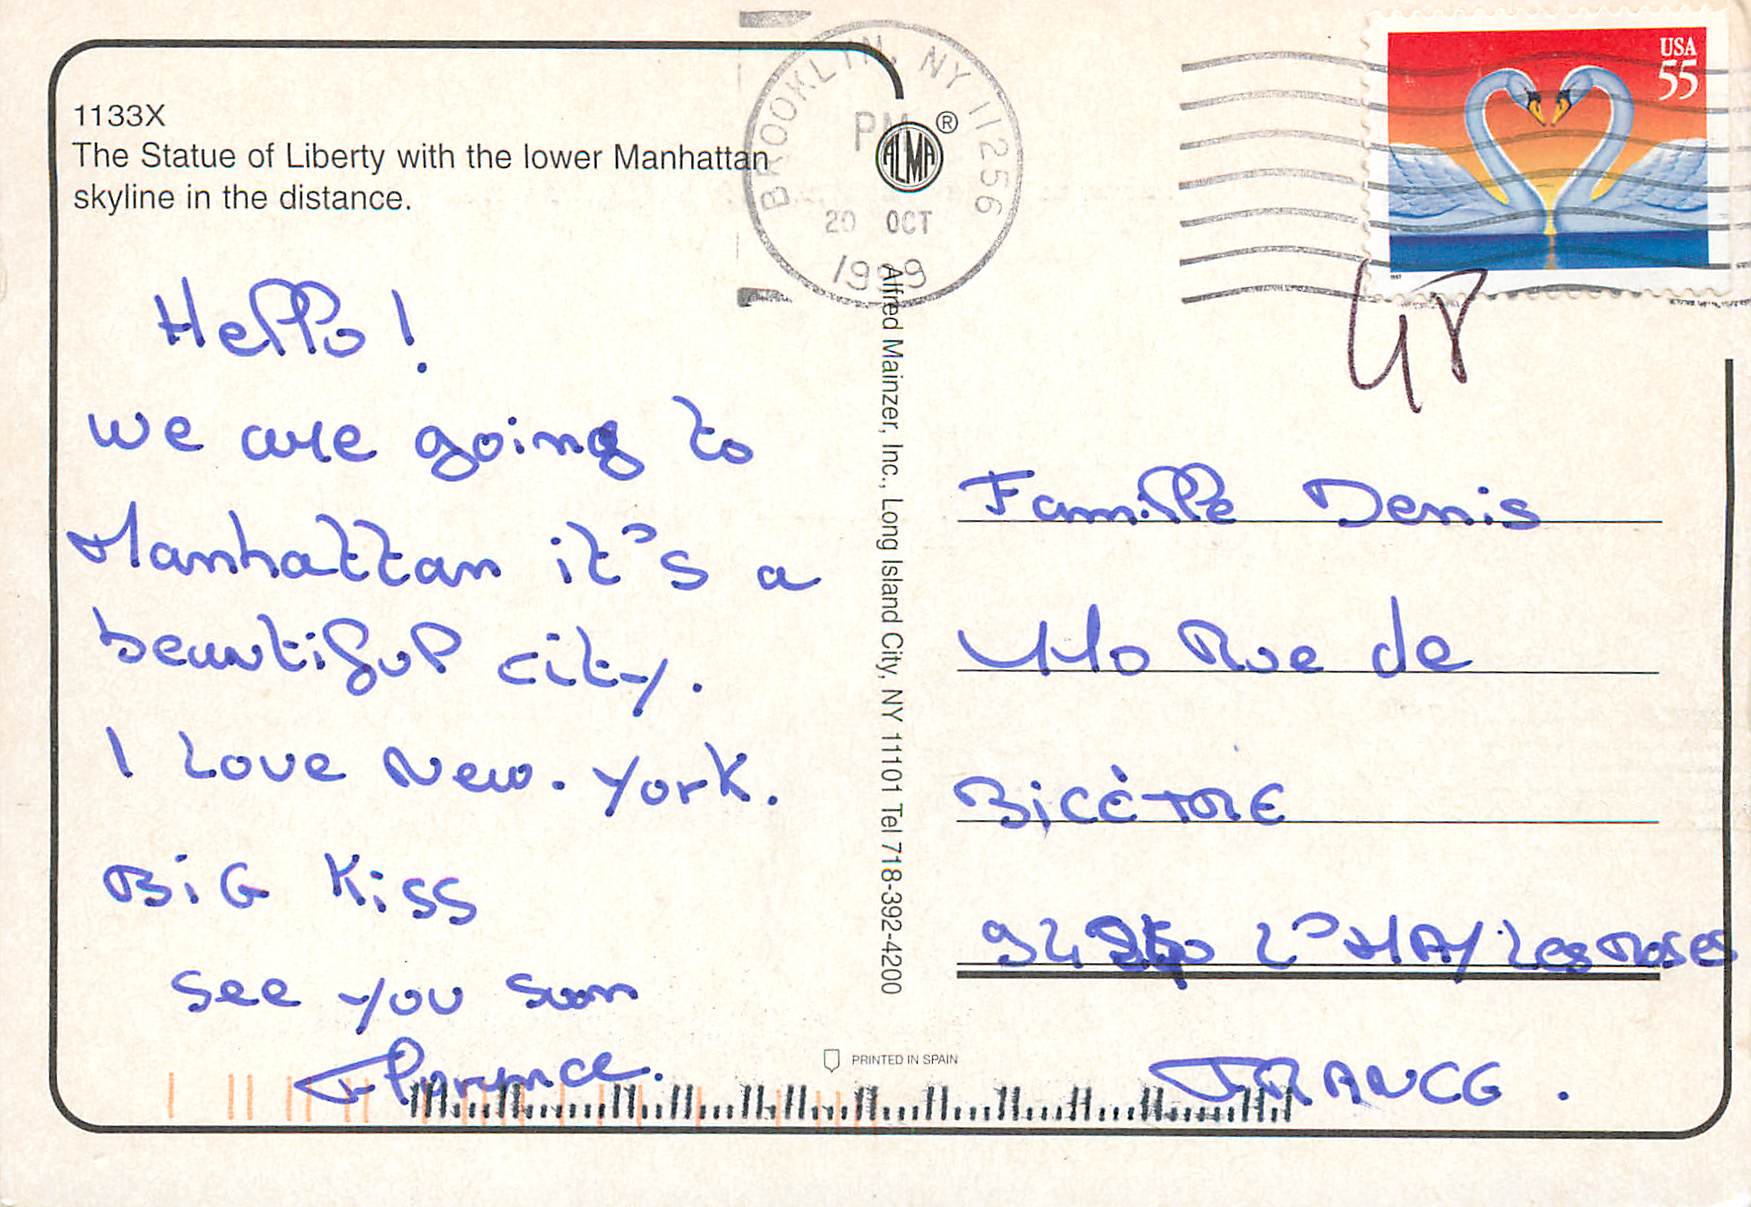 1133X
The Statue of Liberty with the lower Manhattan
skyline in the distance.
BROOKLYN, NY 11256
PM
20 OCT
1999
ALMA®
USA
55
1997
Hello!
we are going to
Manhattan it's a
beautiful city.
I Love New. York.
BiG Kiss
See you soon
Florence.
Alfred Mainzer, Inc., Long Island City, NY 11101 Tel 718-392-4200
Famille Denis
Rue de
BiCÊTRE
L'HAY Les Roses
FRANCE.
PRINTED IN SPAIN